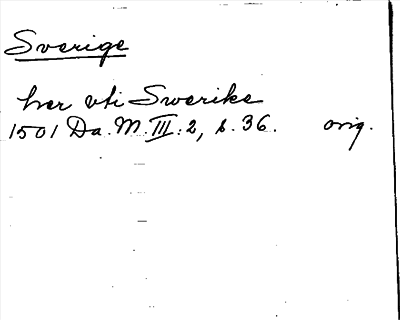 Sverige
her vti Swerike
1501 Da. M. III: 2, s. 36. orig.